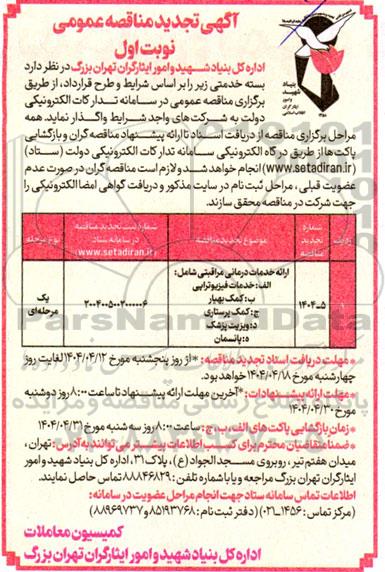 آگهی تجدید مناقصه عمومی
نوبت اول
بنیاد
شهید
و امور
ایثارگران
انقلاب اسلامی
اداره کل بنیاد شهید و امور ایثارگران تهران بزرگ در نظر دارد
بسته خدمتی زیر را بر اساس شرایط و طرح قرارداد، از طریق
برگزاری مناقصه عمومی در سامانه تدارکات الکترونیکی
دولت به شرکت های واجد شرایط واگذار نماید. همه
مراحل برگزاری مناقصه از دریافت اسناد تا ارائه پیشنهاد مناقصه گران و بازگشایی
پاکت ها از طریق درگاه الکترونیکی سامانه تدارکات الکترونیکی دولت (ستاد)
(www.setadiran.ir) انجام خواهد شد و لازم است مناقصه گران در صورت عدم
عضویت قبلی، مراحل ثبت نام در سایت مذکور و دریافت گواهی امضا الکترونیکی را
جهت شرکت در مناقصه محقق سازند.
ردیف
شماره
تجدید
مناقصه
موضوع تجدید مناقصه
شماره ثبت تجدید مناقصه
در سامانه ستاد
(www.setadiran.ir)
نوع مرحله
۱
۱۴۰۴-۵
ارائه خدمات درمانی مراقبتی شامل:
الف: خدمات فیزیوتراپی
ب: کمک بهیار
ج: کمک پرستاری
د: ویزیت پزشک
ه: پانسمان
۲۰۰۴۰۰۵۰۰۲۰۰۰۰۰۶
یک
مرحله ای
ParsNamadData
* مهلت دریافت اسناد تجدید مناقصه: *از روز پنجشنبه مورخ ۱۴۰۴/۰۴/۱۲ لغایت روز
چهارشنبه مورخ ۱۴۰۴/۰۴/۱۸ خواهد بود.
* مهلت ارائه پیشنهادات: *آخرین مهلت ارائه پیشنهاد تا ساعت ۸:۰۰ روز دوشنبه
مورخ ۱۴۰۴/۰۴/۳۰
* زمان بازگشایی پاکت های الف، ب، ج: ساعت ۸:۰۰ روز سه شنبه مورخ ۱۴۰۴/۰۴/۳۱
* ضمنا متقاضیان محترم برای کسب اطلاعات بیشتر می توانند به آدرس: تهران،
میدان هفتم تیر، روبروی مسجد الجواد (ع)، پلاک ۳۱، اداره کل بنیاد شهید و امور
ایثارگران تهران بزرگ مراجعه و یا با شماره تلفن: ۸۸۸۴۶۸۲۹ تماس حاصل نمایند.
اطلاعات تماس سامانه ستاد جهت انجام مراحل عضویت در سامانه:
(مرکز تماس: ۱۴۵۶-۰۲۱) (دفتر ثبت نام: ۸۵۱۹۳۷۶۸ و ۸۸۹۶۹۷۳۷)
کمیسیون معاملات
اداره کل بنیاد شهید و امور ایثارگران تهران بزرگ